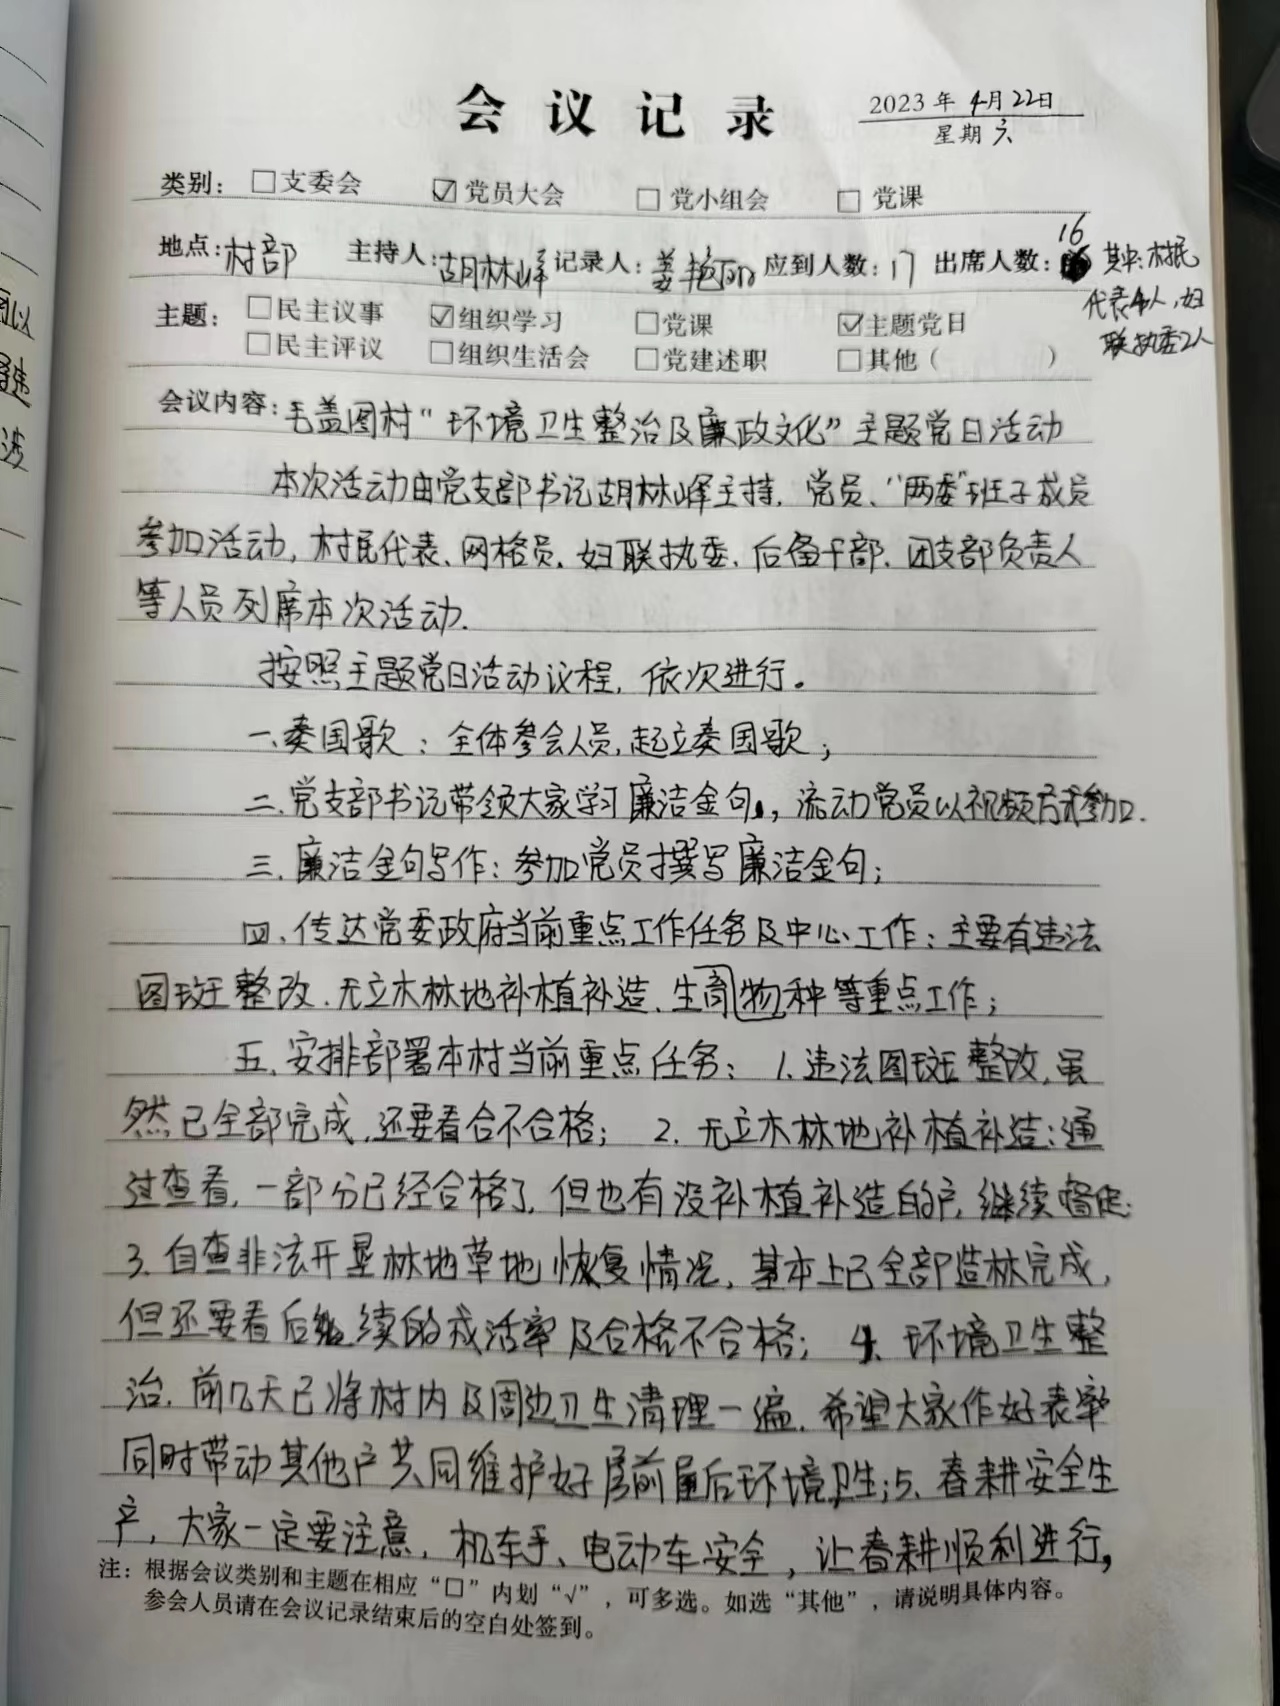 会议记录
2023年4月22日
星期六
类别：□支委会 ☑党员大会 □党小组会 □党课
地点：村部 主持人：胡林峰 记录人：姜艳丽 应到人数：17 出席人数：16 其中：村民
代表4人，妇
联执委2人
主题：□民主议事 ☑组织学习 □党课 ☑主题党日
□民主评议 □组织生活会 □党建述职 □其他（ ）
会议内容：毛盖图村“环境卫生整治及廉政文化”主题党日活动
本次活动由党支部书记胡林峰主持，党员、“两委”班子成员
参加活动，村民代表、网格员、妇联执委、后备干部、团支部负责人
等人员列席本次活动.
按照主题党日活动议程，依次进行。
一、奏国歌：全体参会人员，起立奏国歌；
二、党支部书记带领大家学习廉洁金句，流动党员以视频方式参加.
三、廉洁金句写作：参加党员撰写廉洁金句；
四、传达党委政府当前重点工作任务及中心工作：主要有违法
图斑整改、无立木林地补植补造、生育物种等重点工作；
五、安排部署本村当前重点任务：1.违法图斑整改，虽
然已全部完成，还要看合不合格；2.无立木林地补植补造：通
过查看，一部分已经合格了，但也有没补植补造的户，继续督促；
3、自查非法开垦林地草地恢复情况，基本上已全部造林完成，
但还要看后续的成活率及合格不合格；4、环境卫生整
治，前几天已将村内及周边卫生清理一遍，希望大家作好表率
同时带动其他户共同维护好房前屋后环境卫生；5、春耕安全生
产，大家一定要注意，机车手、电动车安全，让春耕顺利进行，
注：根据会议类别和主题在相应“□”内划“√”，可多选。如选“其他”，请说明具体内容。
参会人员请在会议记录结束后的空白处签到。